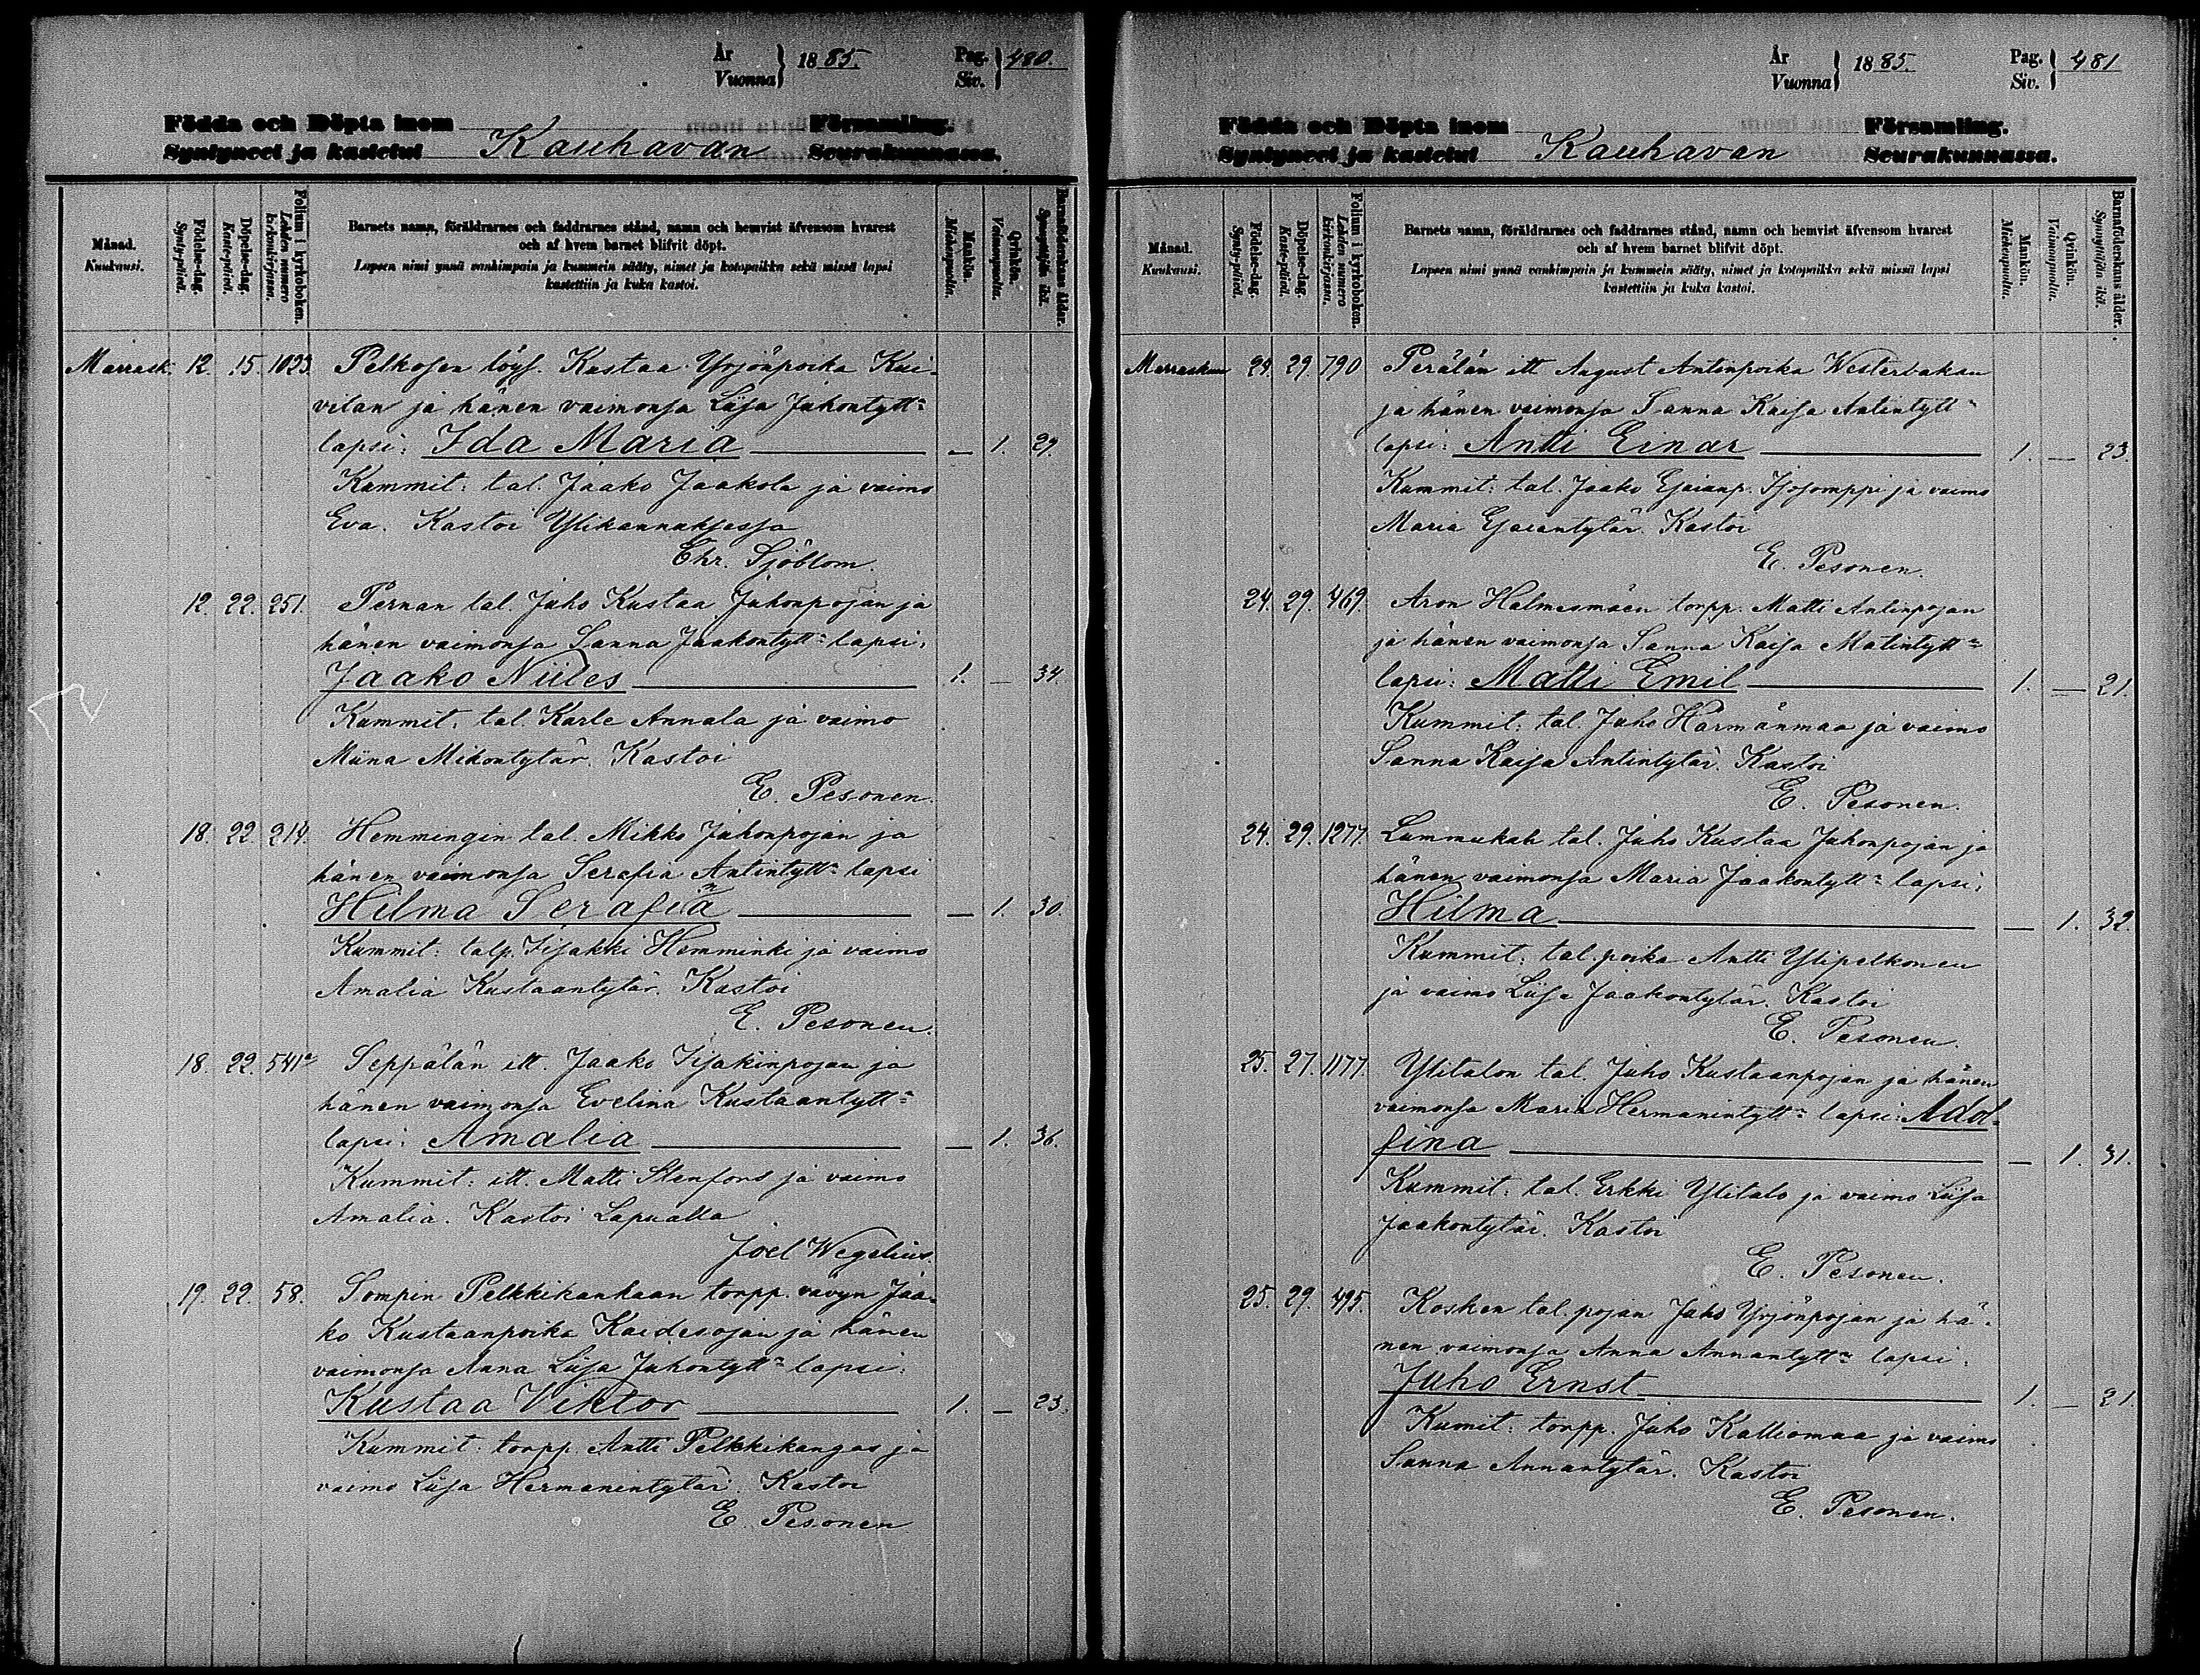 År Vuonna } 1885. Pag. Siv. } 480.
Födda och Döpta inom Församling.
Syntyneet ja kastetut Kauhavan Seurakunnassa.
Månad. Kuukausi.
Födelse-dag. Synty-päivä.
Döpelse-dag. Kaste-päivä.
Folium i kyrkoboken. Lehden numero kirkonkirjassa.
Barnets namn, föräldrarnes och faddrarnes stånd, namn och hemvist äfvensom hvarest
och af hvem barnet blifvit döpt.
Lapsen nimi ynnä vanhimpain ja kummein sääty, nimet ja kotopaikka sekä missä lapsi
kastettiin ja kuka kastoi.
Mankön. Miehenpuolta.
Qvinkön. Vaimonpuolta.
Barnaföderskans ålder. Synnyttäjän ikä.
Marrask. 12. 15. 1033. Pelkosen löys. Kustaa Yrjönpoika Kui-
vilan ja hänen vaimonsa Liisa Juhontytt=
lapsi: Ida Maria — 1. 29.
Kummit: tal. Jaako Jaakola ja vaimo
Eva. Kastoi Ylikannaksessa
Chr. Sjöblom.
12. 22. 251. Pernan tal. Juho Kustaa Juhonpojan ja
hänen vaimonsa Sanna Jaakontytt= lapsi:
Jaako Niiles 1. — 34.
Kummit: tal. Karle Annala ja vaimo
Miina Mikontytär. Kastoi
E. Pesonen.
18. 22. 214. Hemmingin tal. Mikko Juhonpojan ja
hänen vaimonsa Serafia Antintytt= lapsi
Hilma Serafia — 1. 30.
Kummit: talp. Iisakki Hemminki ja vaimo
Amalia Kustaantytär. Kastoi
E. Pesonen.
18. 22. 541 Seppälän itt. Jaako Iisakinpojan ja
hänen vaimonsa Evelina Kustaantytt=
lapsi: Amalia — 1. 36.
Kummit: itt. Matti Stenfors ja vaimo
Amalia. Kastoi Lapualla
Joel Wegelius.
19. 22. 58. Sompin Pelkkikankaan torpp. vävyn Jaa-
ko Kustaanpoika Kaidesojan ja hänen
vaimonsa Anna Liisa Juhontytt= lapsi:
Kustaa Viktor 1. — 23.
Kummit: torpp. Antti Pelkkikangas ja
vaimo Liisa Hermanintytär. Kastoi
E. Pesonen
År Vuonna } 1885. Pag. Siv. } 481
Födda och Döpta inom Församling.
Syntyneet ja kastetut Kauhavan Seurakunnassa.
Månad. Kuukausi.
Födelse-dag. Synty-päivä.
Döpelse-dag. Kaste-päivä.
Folium i kyrkoboken. Lehden numero kirkonkirjassa.
Barnets namn, föräldrarnes och faddrarnes stånd, namn och hemvist äfvensom hvarest
och af hvem barnet blifvit döpt.
Lapsen nimi ynnä vanhimpain ja kummein sääty, nimet ja kotopaikka sekä missä lapsi
kastettiin ja kuka kastoi.
Mankön. Miehenpuolta.
Qvinkön. Vaimonpuolta.
Barnaföderskans ålder. Synnyttäjän ikä.
Marraskuu 24. 29. 790 Perälän itt August Antinpoika Westerbakan
ja hänen vaimonsa Sanna Kaisa Antintytt=
lapsi: Antti Einar 1. — 23.
Kummit: tal. Jaako Esaianp. Isosomppi ja vaimo
Maria Esaiantytär. Kastoi
E. Pesonen.
24. 29. 469. Aron Halmesmäen torpp. Matti Antinpojan
ja hänen vaimonsa Sanna Kaisa Matintytt=
lapsi: Matti Emil 1. — 21.
Kummit: tal. Juho Härmänmaa ja vaimo
Sanna Kaisa Antintytär. Kastoi
E. Pesonen.
24. 29. 1277. Lummukah tal. Juho Kustaa Juhonpojan ja
hänen vaimonsa Maria Jaakontytt= lapsi:
Hilma — 1. 32.
Kummit: tal. poika Antti Ylipelkonen
ja vaimo Liisa Jaakontytär. Kastoi
E. Pesonen.
25. 27. 1177. Ylitalon tal. Juho Kustaanpojan ja hänen
vaimonsa Maria Hermanintytt= lapsi: Adol-
fina — 1. 31.
Kummit: tal. Erkki Ylitalo ja vaimo Liisa
Jaakontytär. Kastoi
E. Pesonen.
25. 29. 495. Kosken tal. pojan Juho Yrjönpojan ja hä-
nen vaimonsa Anna Annantytt= lapsi:
Juho Ernst 1. — 21.
Kumit: torpp. Juho Kalliomaa ja vaimo
Sanna Annantytär. Kastoi
E. Pesonen.